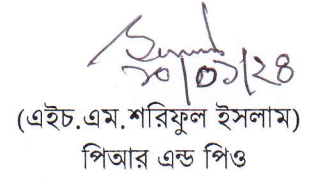 ২০/০১/২৪
(এইচ.এম.শরিফুল ইসলাম)
পিআর এন্ড পিও